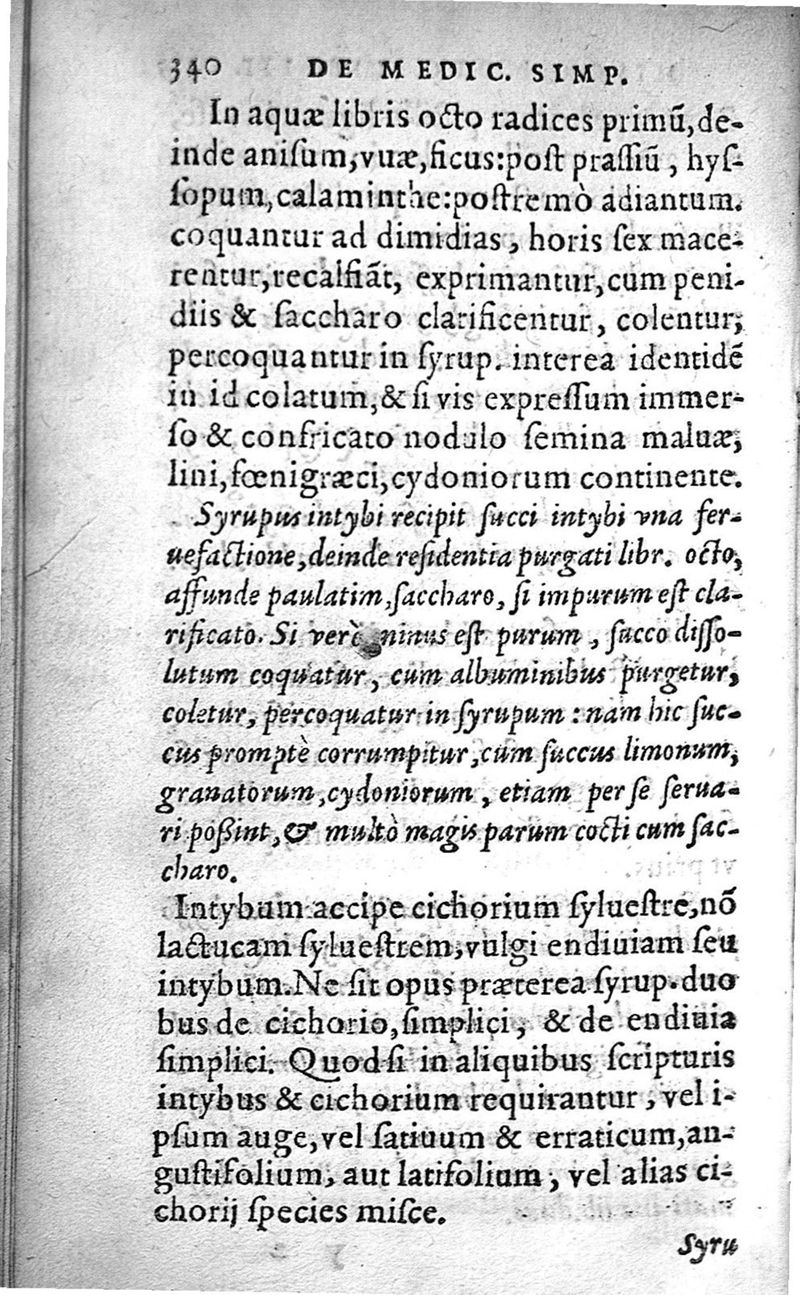 340 DE MEDIC. SIMP.
In aquæ libris octo radices primũ, de-
inde anisum, vuæ, ficus: post prassiũ, hys-
sopum, calaminthe: postremò adiantum.
coquantur ad dimidias, horis sex mace-
rentur, recalfiãt, exprimantur, cum peni-
diis & saccharo clarificentur, colentur,
percoquantur in syrup. interea identidẽ
in id colatum, & si vis expressum immer-
so & confricato nodulo semina maluæ,
lini, fœnigræci, cydoniorum continente.
Syrupus intybi recipit succi intybi vna fer-
uefactione, deinde residentia purgati libr. octo,
affunde paulatim, saccharo, si impurum est cla-
rificato. Si verò minus est purum, succo disso-
lutum coquatur, cum albuminibus purgetur,
coletur, percoquatur in syrupum: nam hic suc-
cus promptè corrumpitur, cùm succus limonum,
granatorum, cydoniorum, etiam per se serua-
ri poßint, & multò magis parum cocti cum sac-
charo.
Intybum accipe cichorium syluestre, nõ
lactucam syluestrem, vulgi endiuiam seu
intybum. Ne sit opus præterea syrup. duo
bus de cichorio, simplici, & de endiuia
simplici. Quod si in aliquibus scripturis
intybus & cichorium requirantur, vel i-
psum auge, vel satiuum & erraticum, an-
gustifolium, aut latifolium, vel alias ci-
chorij species misce.
Syru